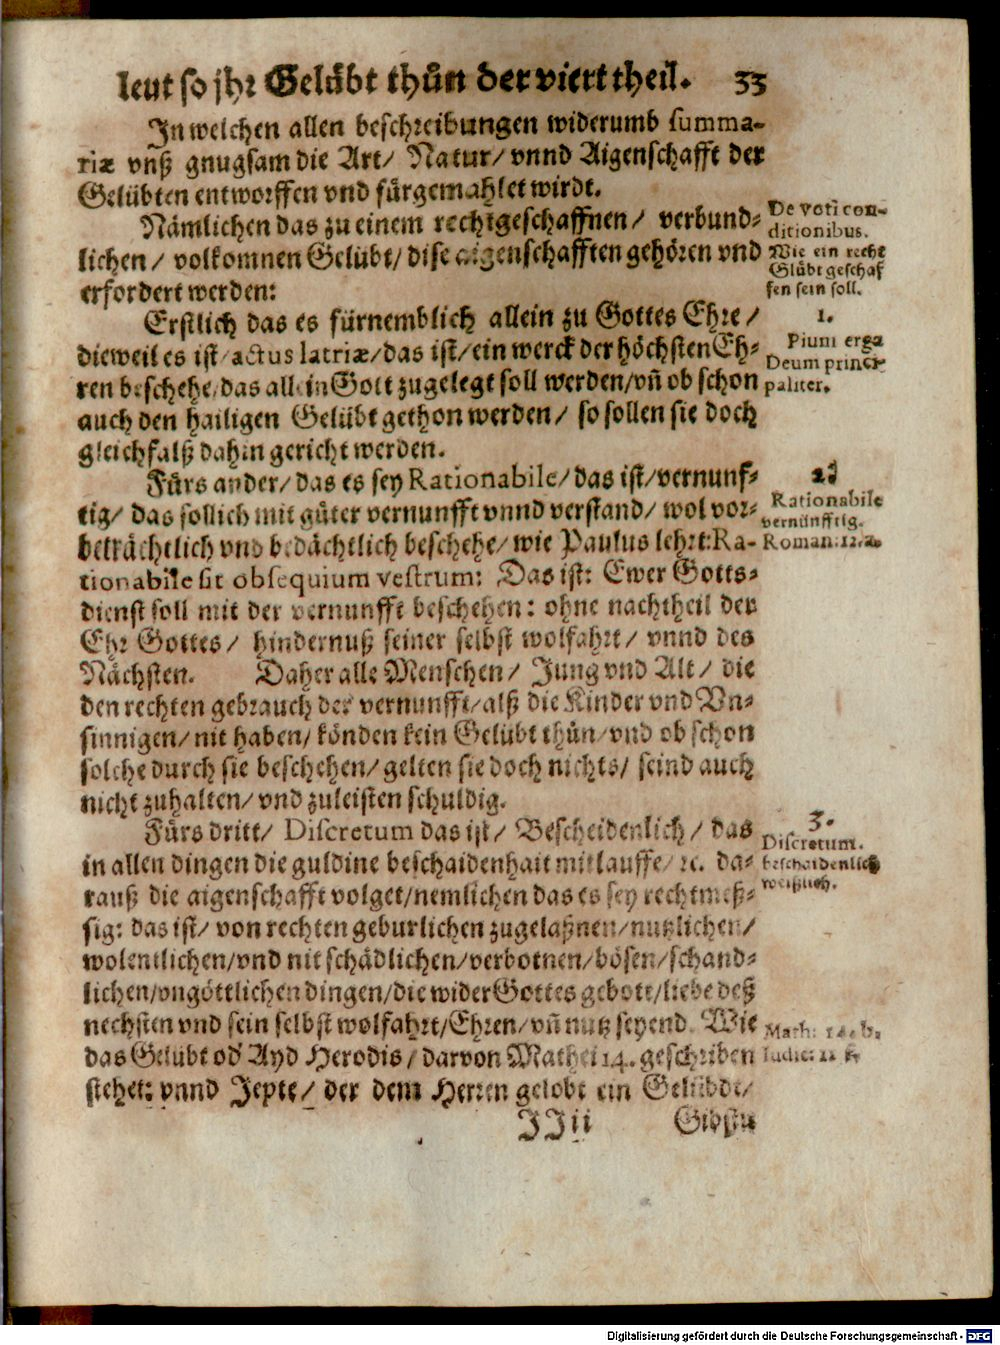 leut so jhr Gelübt thůn der viert theil. 33
In welchen allen beschreibungen widerumb summa-
riæ vnß gnugsam die Art/ Natur/ vnnd Aigenschafft der
Gelübten entworffen vnd fürgemahlet wirdt.
Nämlichen das zu einem rechtgeschaffnen/ verbund-
lichen/ volkomnen Gelübt/ dise aigenschafften gehören vnd
erfordert werden:
De voti con-
ditionibus.
Wie ein recht
Glübt geschaf
fen sein soll.
Erstlich das es fürnemblich allein zu Gottes Ehre/
dieweil es ist/ actus latriæ/ das ist/ ein werck der höchsten Eh-
ren beschehe/ das allein Gott zugelegt soll werden/ vñ ob schon
auch den hailigen Gelübt gethon werden/ so sollen sie doch
gleichfalß dahin gericht werden.
1.
Pium erga
Deum princi-
paliter.
Fürs ander/ das es sey Rationabile/ das ist/ vernunf-
tig/ das sollich mit güter vernunfft vnnd verstand/ wol vor-
beträchtlich vnd bedächtlich beschehe/ wie Paulus lehrt: Ra-
tionabile sit obsequium vestrum: Das ist: Ewer Gotts-
dienst soll mit der vernunfft beschehen: ohne nachtheil der
Ehr Gottes/ hindernuß seiner selbst wolfahrt/ vnnd des
Nächsten. Daher alle Menschen/ Jung vnd Alt/ die
den rechten gebrauch der vernunfft/ alß die Kinder vnd Vn-
sinnigen/ nit haben/ könden kein Gelübt thůn/ vnd ob schon
solche durch sie beschehen/ gelten sie doch nichts/ seind auch
nicht zuhalten/ vnd zuleisten schuldig.
2.
Rationabile
vernünfftig.
Roman. 12. a.
Fürs dritt/ Discretum das ist/ Bescheidenlich/ das
in allen dingen die guldine beschaidenhait mitlauffe/ ꝛc. da-
rauß die aigenschafft volget/ nemlichen das es sey rechtmeß-
sig: das ist/ von rechten geburlichen zugelaßnen/ nutzlichen/
wolentlichen/ vnd nit schädlichen/ verbotnen/ bösen/ schand-
lichen/ vngöttlichen dingen/ die wider Gottes gebott/ liebe deß
nechsten vnd sein selbst wolfahrt/ Ehren/ vñ nutz seyend. Wie
das Gelübt od' Ayd Herodis/ darvon Mathei 14. geschriben
stehet: vnnd Jepte/ der dem Herren gelobt ein Gelübde/
3.
Discretum.
beschaidenlich
weißlich.
Math: 14. b.
Iudic: 11
JJ ii Gibstu
Digitalisierung gefördert durch die Deutsche Forschungsgemeinschaft - DFG